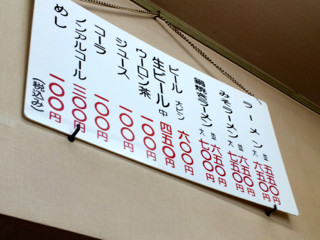 ラーメン 並 五五〇円
大 六五〇円
みそラーメン 並 六五〇円
大 七五〇円
大 七〇〇円
ビール 大ビン 六〇〇円
生ビール 中 四五〇円
ウーロン茶 一〇〇円
ジュース 一〇〇円
コーラ 一〇〇円
ノンアルコール 三〇〇円
めし 一〇〇円
(税込み)